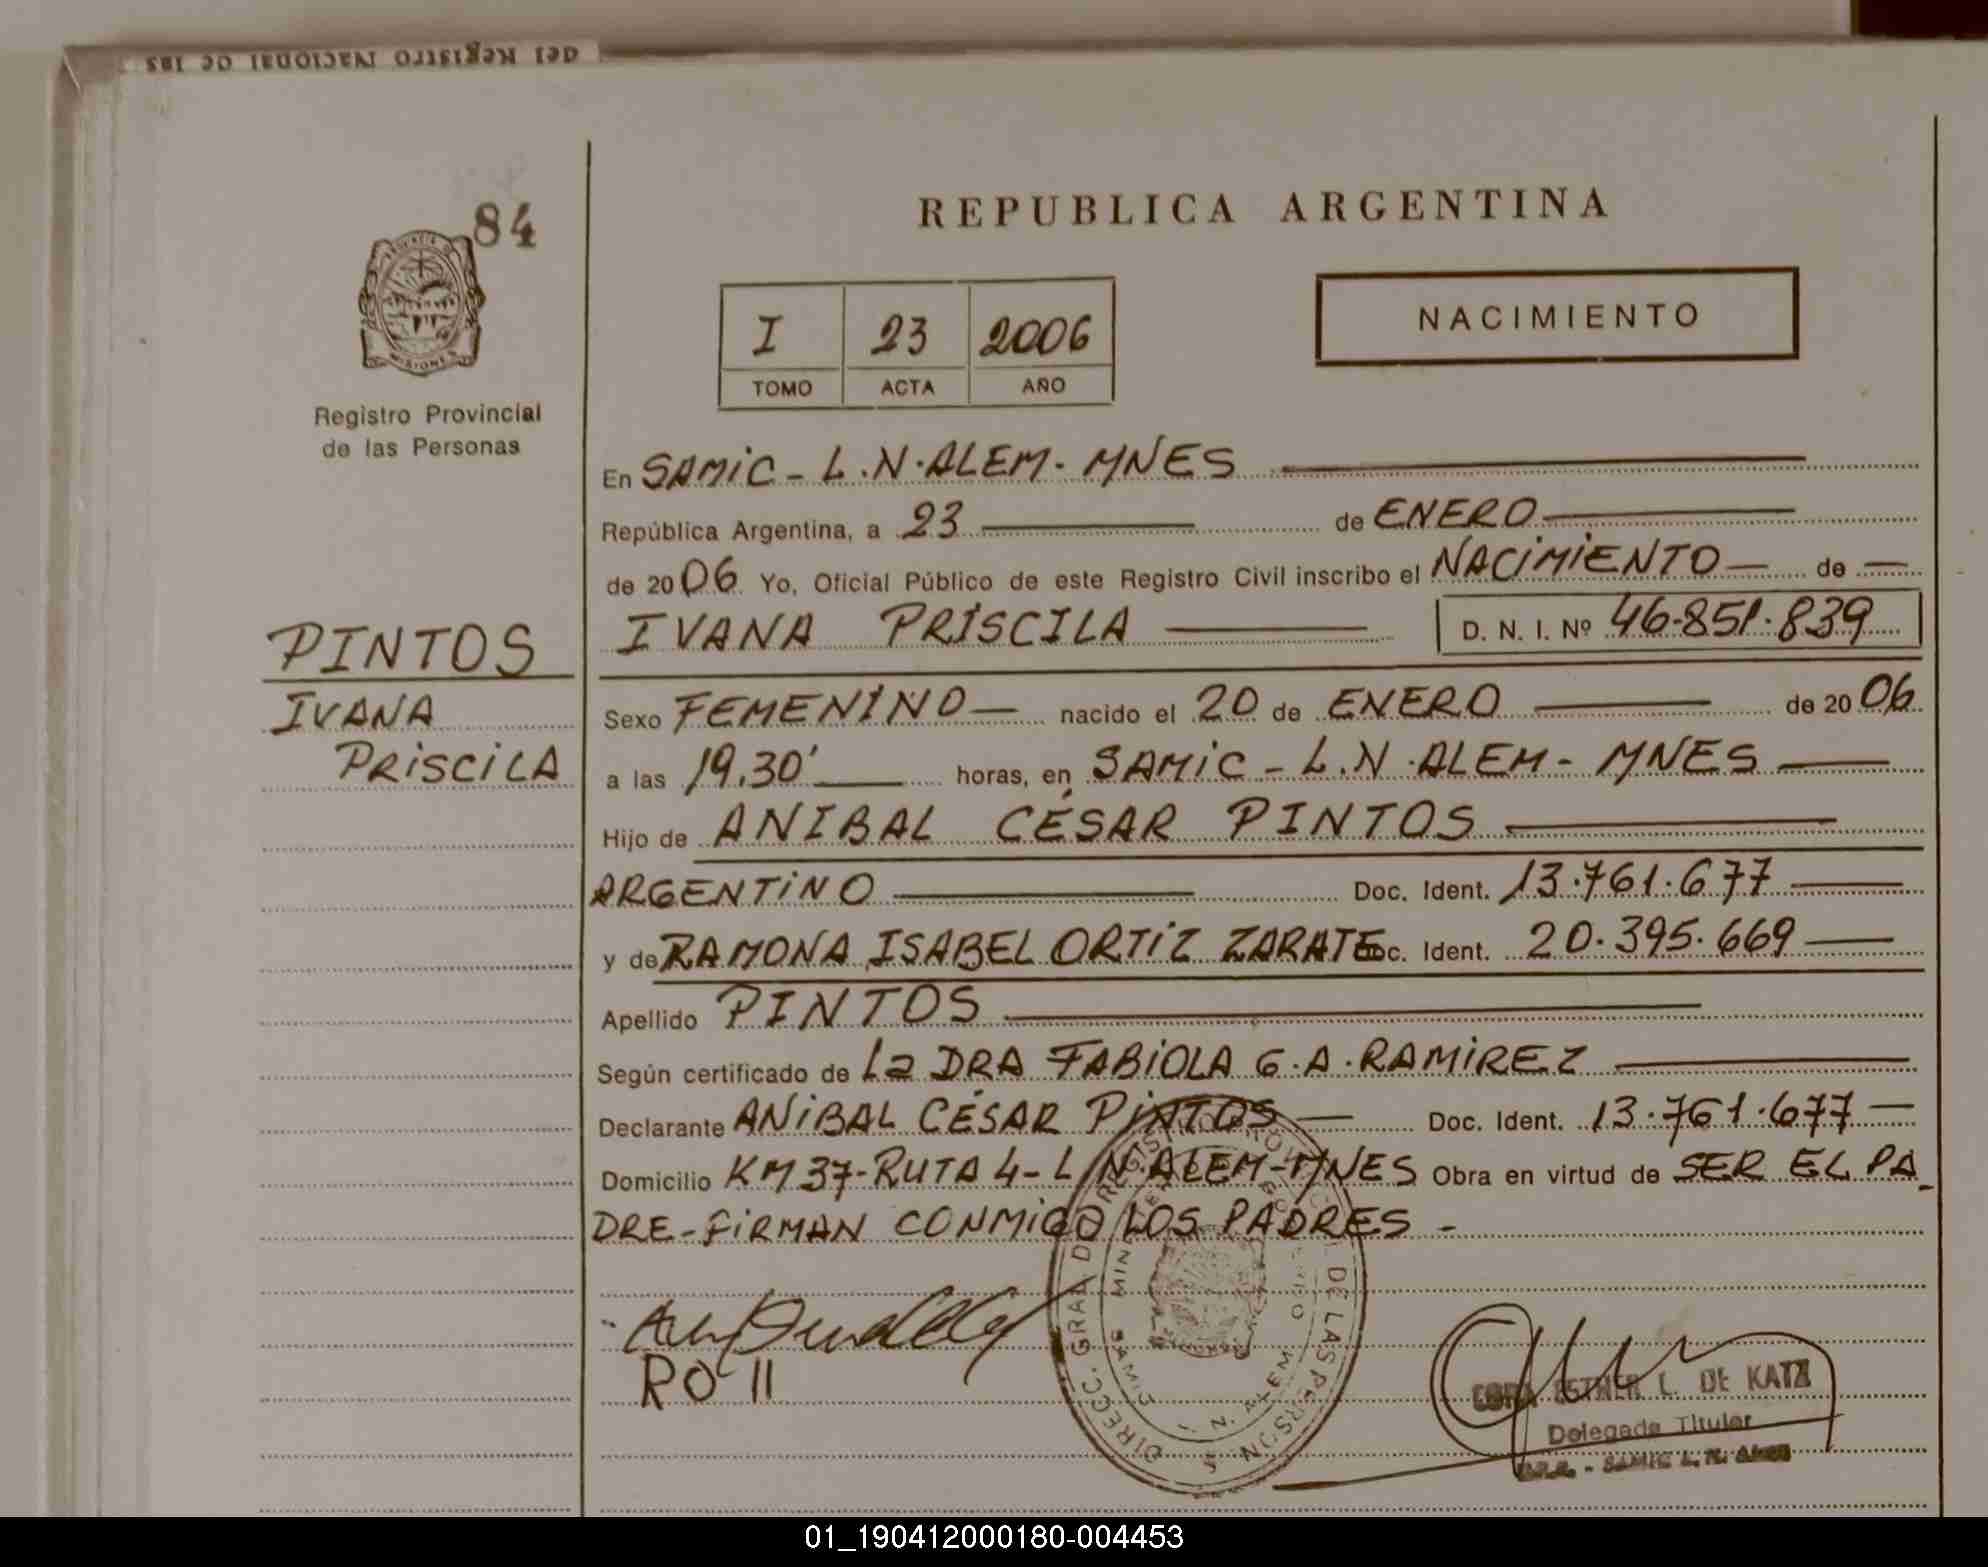 del Registro Nacional de las
84
PROVINCIA DE
MISIONES
Registro Provincial
de las Personas
REPUBLICA ARGENTINA
I 23 2006
TOMO ACTA AÑO
NACIMIENTO
En SAMIC - L.N. ALEM - MNES
República Argentina, a 23 de ENERO
de 2006 Yo, Oficial Público de este Registro Civil inscribo el NACIMIENTO de
IVANA PRISCILA D. N. I. Nº 46.851.839
PINTOS
IVANA
PRISCILA
Sexo FEMENINO nacido el 20 de ENERO de 2006
a las 19.30' horas, en SAMIC - L.N. ALEM - MNES
Hijo de ANIBAL CÉSAR PINTOS
ARGENTINO Doc. Ident. 13.761.677
y de RAMONA ISABEL ORTIZ ZARATE Doc. Ident. 20.395.669
Apellido PINTOS
Según certificado de La DRA FABIOLA G.A. RAMIREZ
Declarante ANIBAL CÉSAR PINTOS Doc. Ident. 13.761.677
Domicilio KM 37-RUTA 4-L.N. ALEM-MNES Obra en virtud de SER EL PA
DRE-FIRMAN CONMIGO LOS PADRES -
RO II
DIRECC. GRAL DE REGISTRO PROVINCIAL DE LAS PERSONAS
SAMIC
L.N. ALEM
ESTHER L. DE KATZ
Delegada Titular
SAMIC L. N. Alem
01_190412000180-004453